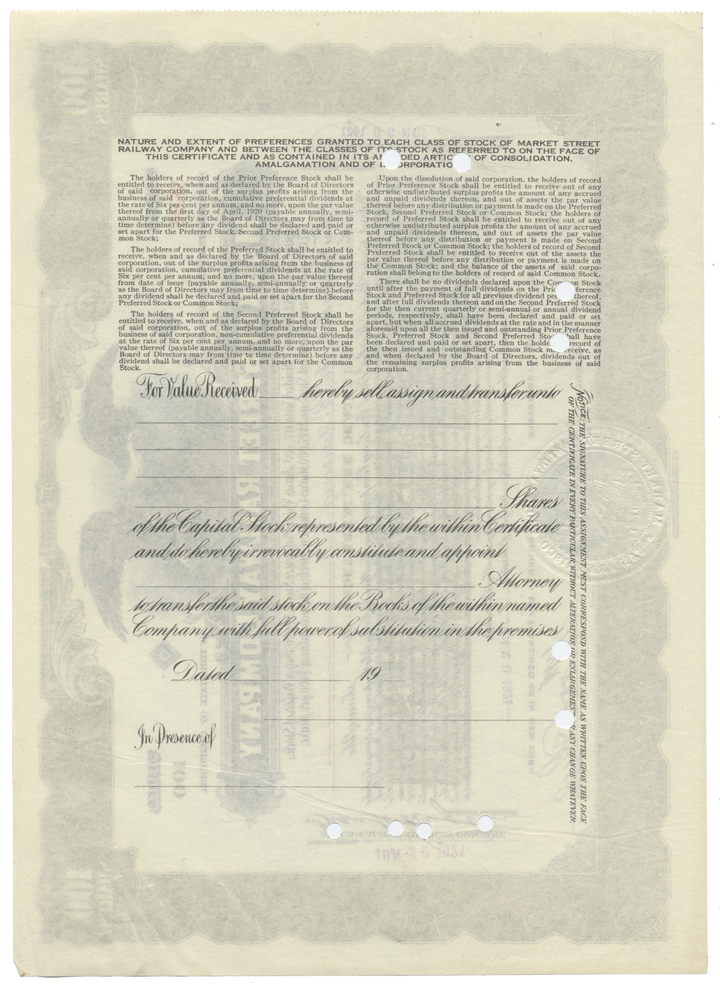 NATURE AND EXTENT OF PREFERENCES GRANTED TO EACH CLASS OF STOCK OF MARKET STREET
RAILWAY COMPANY AND BETWEEN THE CLASSES OF ITS STOCK AS REFERRED TO ON THE FACE OF
THIS CERTIFICATE AND AS CONTAINED IN ITS AMENDED ARTICLES OF CONSOLIDATION,
AMALGAMATION AND OF INCORPORATION.
The holders of record of the Prior Preference Stock shall be
entitled to receive, when and as declared by the Board of Directors
of said corporation, out of the surplus profits arising from the
business of said corporation, cumulative preferential dividends at
the rate of Six per cent per annum, and no more, upon the par value
thereof from the first day of April, 1920 (payable annually, semi-
annually or quarterly as the Board of Directors may from time to
time determine) before any dividend shall be declared and paid or
set apart for the Preferred Stock, Second Preferred Stock or Com-
mon Stock;
The holders of record of the Preferred Stock shall be entitled to
receive, when and as declared by the Board of Directors of said
corporation, out of the surplus profits arising from the business of
said corporation, cumulative preferential dividends at the rate of
Six per cent per annum, and no more, upon the par value thereof
from date of issue (payable annually, semi-annually or quarterly
as the Board of Directors may from time to time determine) before
any dividend shall be declared and paid or set apart for the Second
Preferred Stock or Common Stock;
The holders of record of the Second Preferred Stock shall be
entitled to receive, when and as declared by the Board of Directors
of said corporation, out of the surplus profits arising from the
business of said corporation, non-cumulative preferential dividends
at the rate of Six per cent per annum, and no more, upon the par
value thereof (payable annually, semi-annually or quarterly as the
Board of Directors may from time to time determine) before any
dividend shall be declared and paid or set apart for the Common
Stock.
Upon the dissolution of said corporation, the holders of record
of Prior Preference Stock shall be entitled to receive out of any
otherwise undistributed surplus profits the amount of any accrued
and unpaid dividends thereon, and out of assets the par value
thereof before any distribution or payment is made on the Preferred
Stock, Second Preferred Stock or Common Stock; the holders of
record of Preferred Stock shall be entitled to receive out of any
otherwise undistributed surplus profits the amount of any accrued
and unpaid dividends thereon, and out of assets the par value
thereof before any distribution or payment is made on Second
Preferred Stock or Common Stock; the holders of record of Second
Preferred Stock shall be entitled to receive out of the assets the
par value thereof before any distribution or payment is made on
the Common Stock; and the balance of the assets of said corpo-
ration shall belong to the holders of record of said Common Stock.
There shall be no dividends declared upon the Common Stock
until after the payment of full dividends on the Prior Preference
Stock and Preferred Stock for all previous dividend periods thereof,
and after full dividends thereon and on the Second Preferred Stock
for the then current quarterly or semi-annual or annual dividend
periods, respectively, shall have been declared and paid or set
apart, but when all accrued dividends at the rate and in the manner
aforesaid upon all the then issued and outstanding Prior Preference
Stock, Preferred Stock and Second Preferred Stock shall have
been declared and paid or set apart, then the holders of record of
the then issued and outstanding Common Stock may receive, as
and when declared by the Board of Directors, dividends out of
the remaining surplus profits arising from the business of said
corporation.
For Value Received hereby sell, assign and transfer unto
Shares
of the Capital Stock represented by the within Certificate
and do hereby irrevocably constitute and appoint
Attorney
to transfer the said stock on the Books of the within named
Company, with full power of substitution in the premises
Dated 19
In Presence of
Notice: THE SIGNATURE TO THIS ASSIGNMENT MUST CORRESPOND WITH THE NAME AS WRITTEN UPON THE FACE
OF THE CERTIFICATE IN EVERY PARTICULAR WITHOUT ALTERATION OR ENLARGEMENT OR ANY CHANGE WHATEVER.